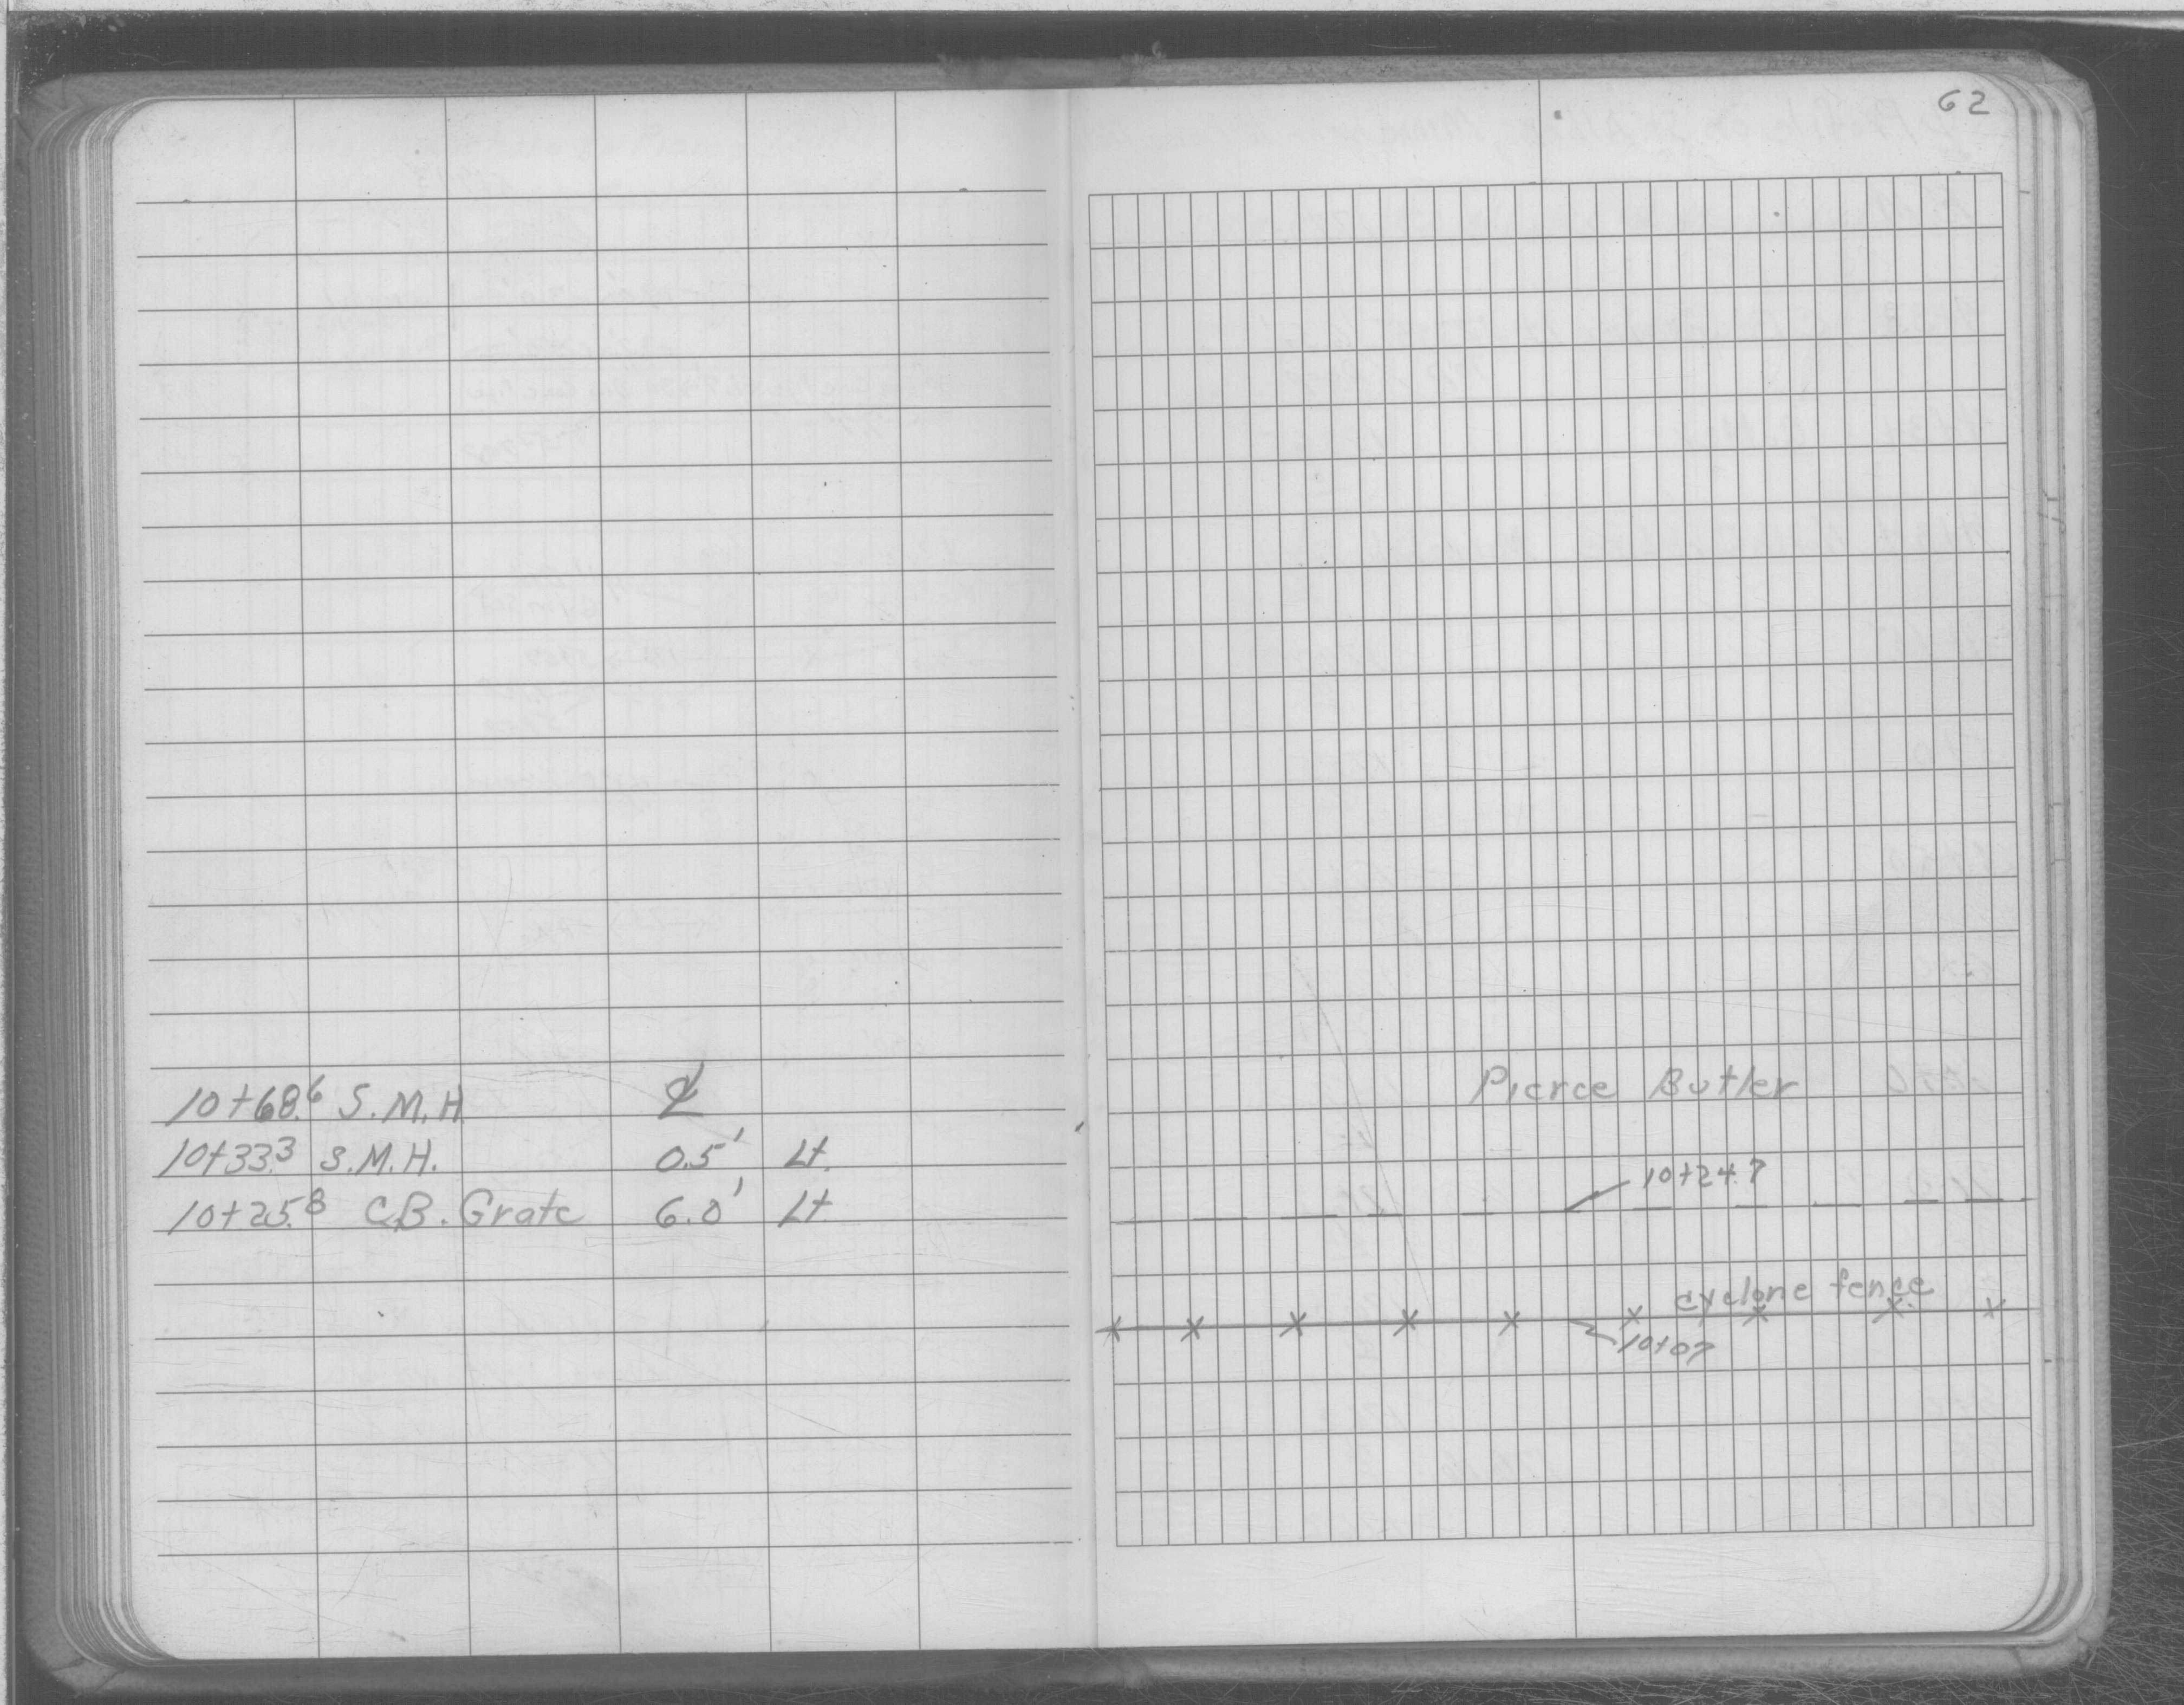 62
10+68.6 S.M.H. ℄
10+33.3 S.M.H. 0.5' Lt.
10+25.8 C.B. Grate 6.0' Lt.
Pierce Butler
10+24.7
cyclone fence
10+07